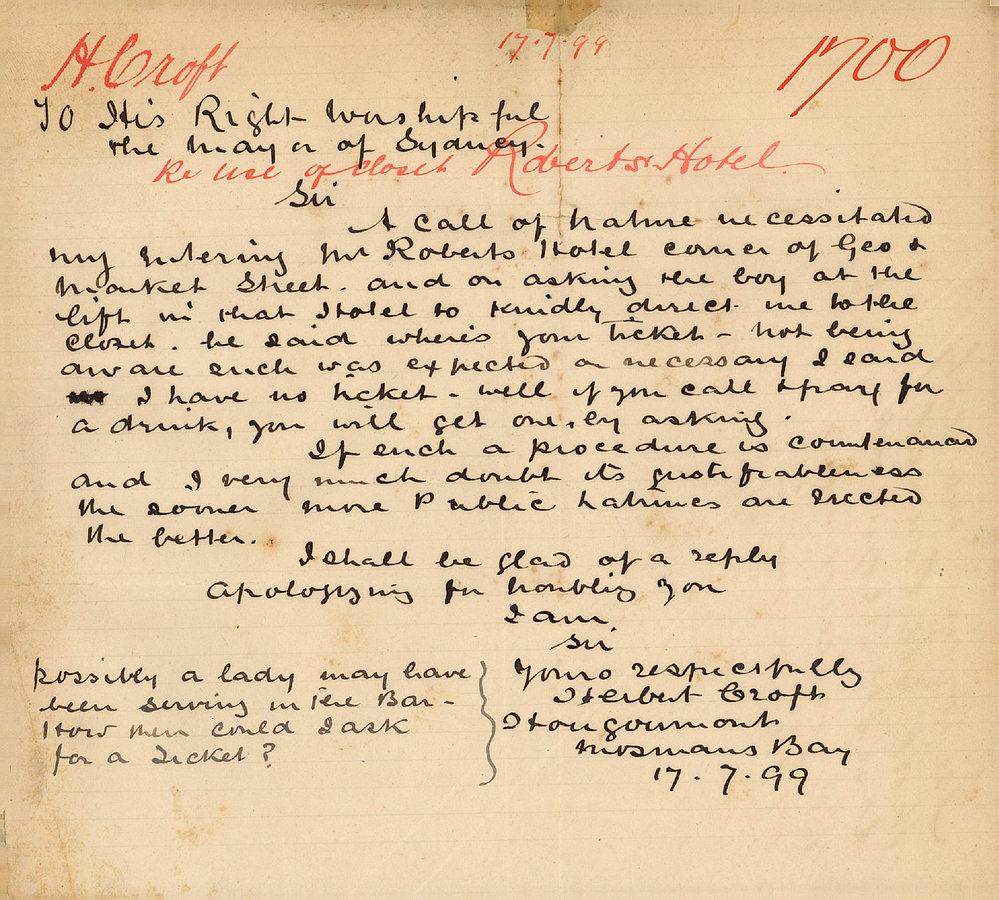 H. Croft
17.7.99
1700
To His Right Worshipful
the Mayor of Sydney.
Re use of closet Roberts Hotel.
Sir
A call of nature necessitated
my entering Mr Roberts Hotel corner of Geo &
Market Street. and on asking the boy at the
lift in that Hotel to kindly direct me to the
closet. he said where's your ticket - not being
aware such was expected or necessary I said
I have no ticket - well if you call & pay for
a drink, you will get one, by asking.
If such a procedure is countenanced
and I very much doubt its justifiableness
the sooner more Public Latrines are erected
the better.
I shall be glad of a reply
Apologizing for troubling you
I am,
Sir
Yours respectfully
Herbert Croft
Hougoumont
Mosmans Bay
17.7.99
possibly a lady may have
been serving in the Bar -
How then could I ask
for a Ticket?